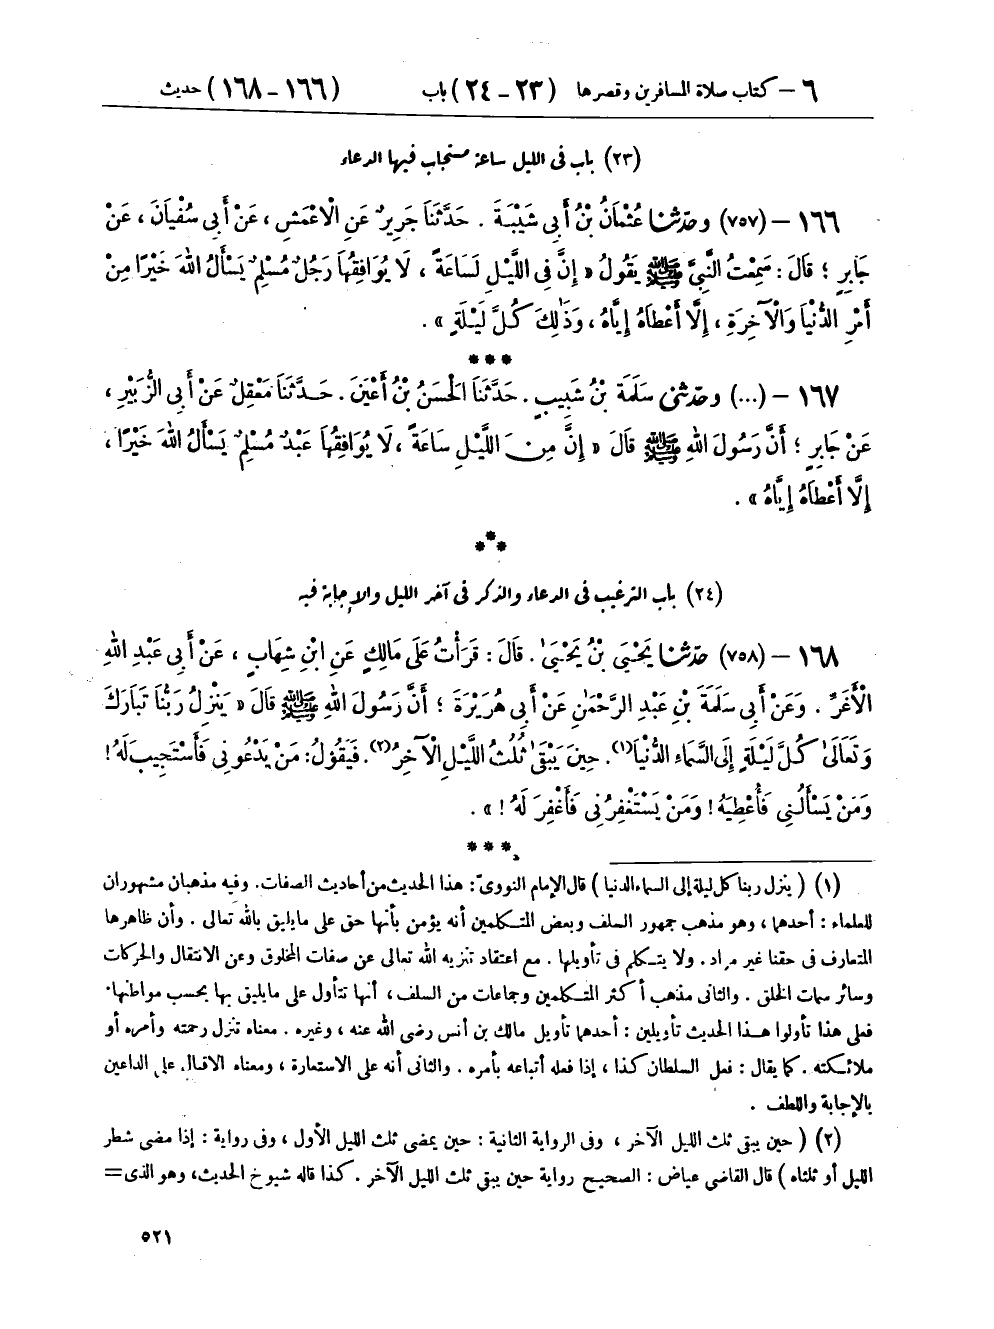 ٦ – كتاب صلاة المسافرين وقصرها (٢٣ – ٢٤) باب (١٦٦ – ١٦٨) حديث
(٢٣) باب فى الليل ساعة مستجاب فيها الدعاء
١٦٦ – (٧٥٧) وحَدَّثَنَا عُثْمَانُ بْنُ أَبِى شَيْبَةَ . حَدَّثَنَا جَرِيرٌ عَنِ الْأَعْمَشِ، عَنْ أَبِى سُفْيَانَ ، عَنْ
جَابِرٍ ؛ قَالَ : سَمِعْتُ النَّبِيَّ ﷺ يَقُولُ « إِنَّ فِى اللَّيْلِ لَسَاعَةً ، لَا يُوَافِقُهَا رَجُلٌ مُسْلِمٌ يَسْأَلُ اللهَ خَيْرًا مِنْ
أَمْرِ الدُّنْيَا وَالْآخِرَةِ ، إِلَّا أَعْطَاهُ إِيَّاهُ ، وَذٰلِكَ كُلَّ لَيْلَةٍ » .
* * *
١٦٧ – (...) وحَدَّثَنِى سَلَمَةُ بْنُ شَبِيبٍ . حَدَّثَنَا الْحَسَنُ بْنُ أَعْيَنَ . حَدَّثَنَا مَعْقِلٌ عَنْ أَبِى الزُّبَيْرِ ،
عَنْ جَابِرٍ ؛ أَنَّ رَسُولَ اللهِ ﷺ قَالَ « إِنَّ مِنَ اللَّيْلِ سَاعَةً ، لَا يُوَافِقُهَا عَبْدٌ مُسْلِمٌ يَسْأَلُ اللهَ خَيْرًا ،
إِلَّا أَعْطَاهُ إِيَّاهُ » .
* * *
(٢٤) باب الترغيب فى الدعاء والذكر فى آخر الليل والإجابة فيه
١٦٨ – (٧٥٨) حَدَّثَنَا يَحْيَى بْنُ يَحْيَىٰ . قَالَ : قَرَأْتُ عَلَى مَالِكٍ عَنِ ابْنِ شِهَابٍ ، عَنْ أَبِى عَبْدِ اللهِ
الْأَغَرِّ . وَعَنْ أَبِى سَلَمَةَ بْنِ عَبْدِ الرَّحْمَٰنِ عَنْ أَبِى هُرَيْرَةَ ؛ أَنَّ رَسُولَ اللهِ ﷺ قَالَ « يَنْزِلُ رَبُّنَا تَبَارَكَ
وَتَعَالَىٰ كُلَّ لَيْلَةٍ إِلَى السَّمَاءِ الدُّنْيَا(١). حِينَ يَبْقَىٰ ثُلُثُ اللَّيْلِ الْآخِرُ(٢). فَيَقُولُ: مَنْ يَدْعُونِى فَأَسْتَجِيبَ لَهُ !
وَمَنْ يَسْأَلُنِى فَأُعْطِيَهُ ! وَمَنْ يَسْتَغْفِرُنِى فَأَغْفِرَ لَهُ ! » .
* * *
(١) ( ينزل ربنا كل ليلة إلى السماء الدنيا ) قال الإمام النووىّ : هذا الحديث من أحاديث الصفات. وفيه مذهبان مشهوران
للعلماء : أحدهما ، وهو مذهب جمهور السلف وبعض المتكلمين أنه يؤمن بأنها حق على ما يليق بالله تعالى . وأن ظاهرها
المتعارف فى حقنا غير مراد . ولا يتكلم فى تأويلها . مع اعتقاد تنزيه الله تعالى عن صفات المخلوق وعن الانتقال والحركات
وسائر سمات الخلق . والثانى مذهب أكثر المتكلمين وجماعات من السلف ، أنها تتأول على ما يليق بها بحسب مواطنها .
فعلى هذا تأولوا هذا الحديث تأويلين : أحدهما تأويل مالك بن أنس رضى الله عنه ، وغيره . معناه تنزل رحمته وأمره أو
ملائكته . كما يقال : فعل السلطان كذا ، إذا فعله أتباعه بأمره . والثانى أنه على الاستعارة ، ومعناه الاقبال على الداعين
بالإجابة واللطف .
(٢) ( حين يبقى ثلث الليل الآخر ، وفى الرواية الثانية : حين يمضى ثلث الليل الأول ، وفى رواية : إذا مضى شطر
الليل أو ثلثاه ) قال القاضى عياض : الصحيح رواية حين يبقى ثلث الليل الآخر . كذا قاله شيوخ الحديث، وهو الذى =
٥٢١